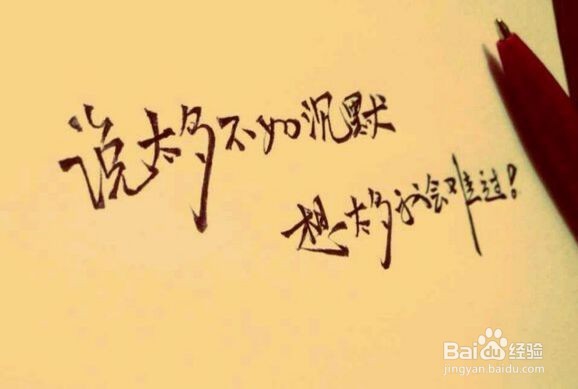 说太多不如沉默
想太多就会难过!
Baidu经验
jingyan.baidu.com